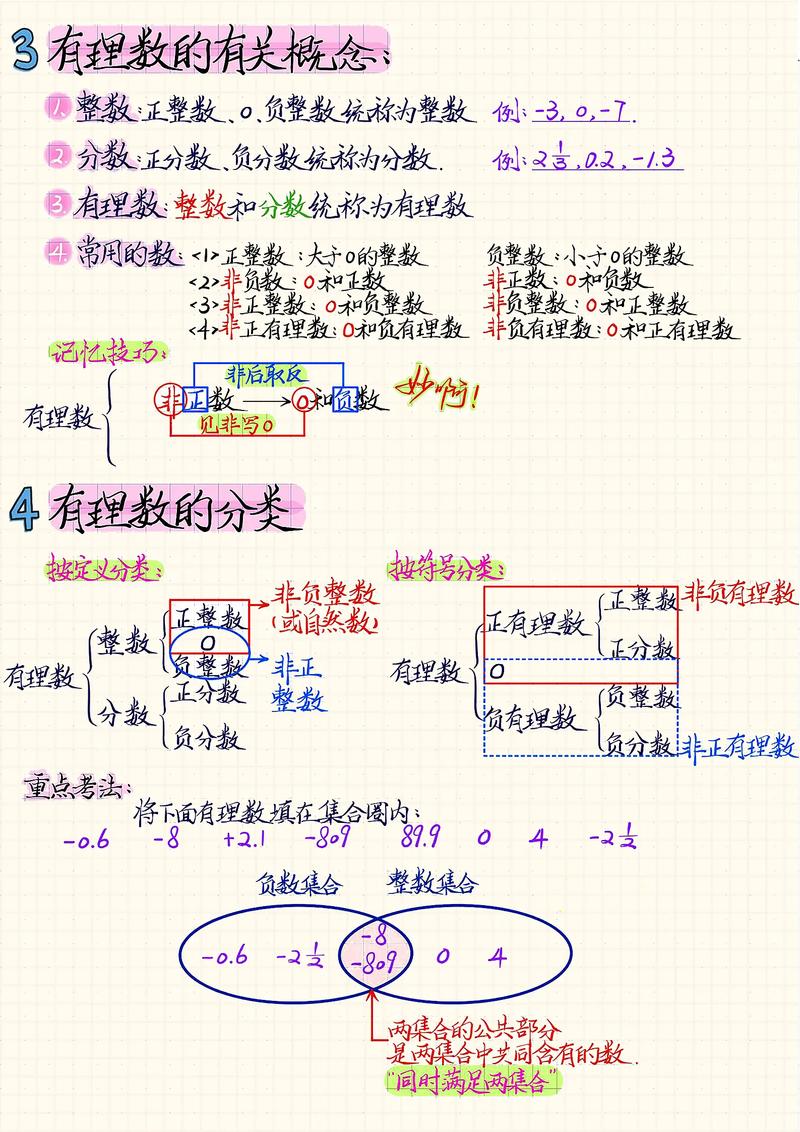 3 有理数的有关概念:
1. 整数:正整数、0、负整数统称为整数 例:-3, 0, -7.
2 分数:正分数、负分数统称为分数. 例:2 1/3, 0.2, -1.3
3. 有理数:整数和分数统称为有理数
4. 常用的数:<1>正整数:大于0的整数 负整数:小于0的整数
<2>非负数:0和正数 非正数:0和负数
<3>非正整数:0和负整数 非负整数:0和正整数
<4>非正有理数:0和负有理数 非负有理数:0和正有理数
记忆技巧:
非后取反
有理数 非正数 → 0和负数 妙啊!
见非写0
4 有理数的分类
按定义分类: 按符号分类:
有理数
整数
正整数
0
负整数
分数
正分数
负分数
非负整数
(或自然数)
非正
整数
有理数
正有理数
正整数
正分数
0
负有理数
负整数
负分数
非负有理数
非正有理数
重点考法:
将下面有理数填在集合圈内:
-0.6 -8 +2.1 -809 89.9 0 4 -2 1/2
负数集合 整数集合
-0.6 -2 1/2 -8 -809 0 4
两集合的公共部分
是两集合中共同含有的数.
"同时满足两集合"